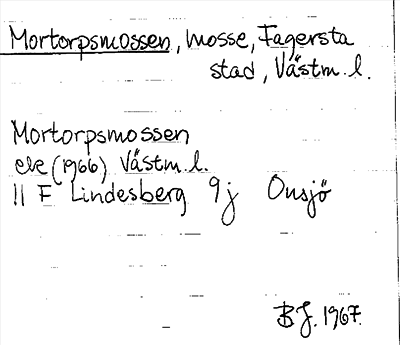 Mortorpsmossen, mosse, Fagersta
stad, Västm. l.
Mortorpsmossen
ek (1966) Västm. l.
11 F Lindesberg 9j Onsjö
BJ. 1967.